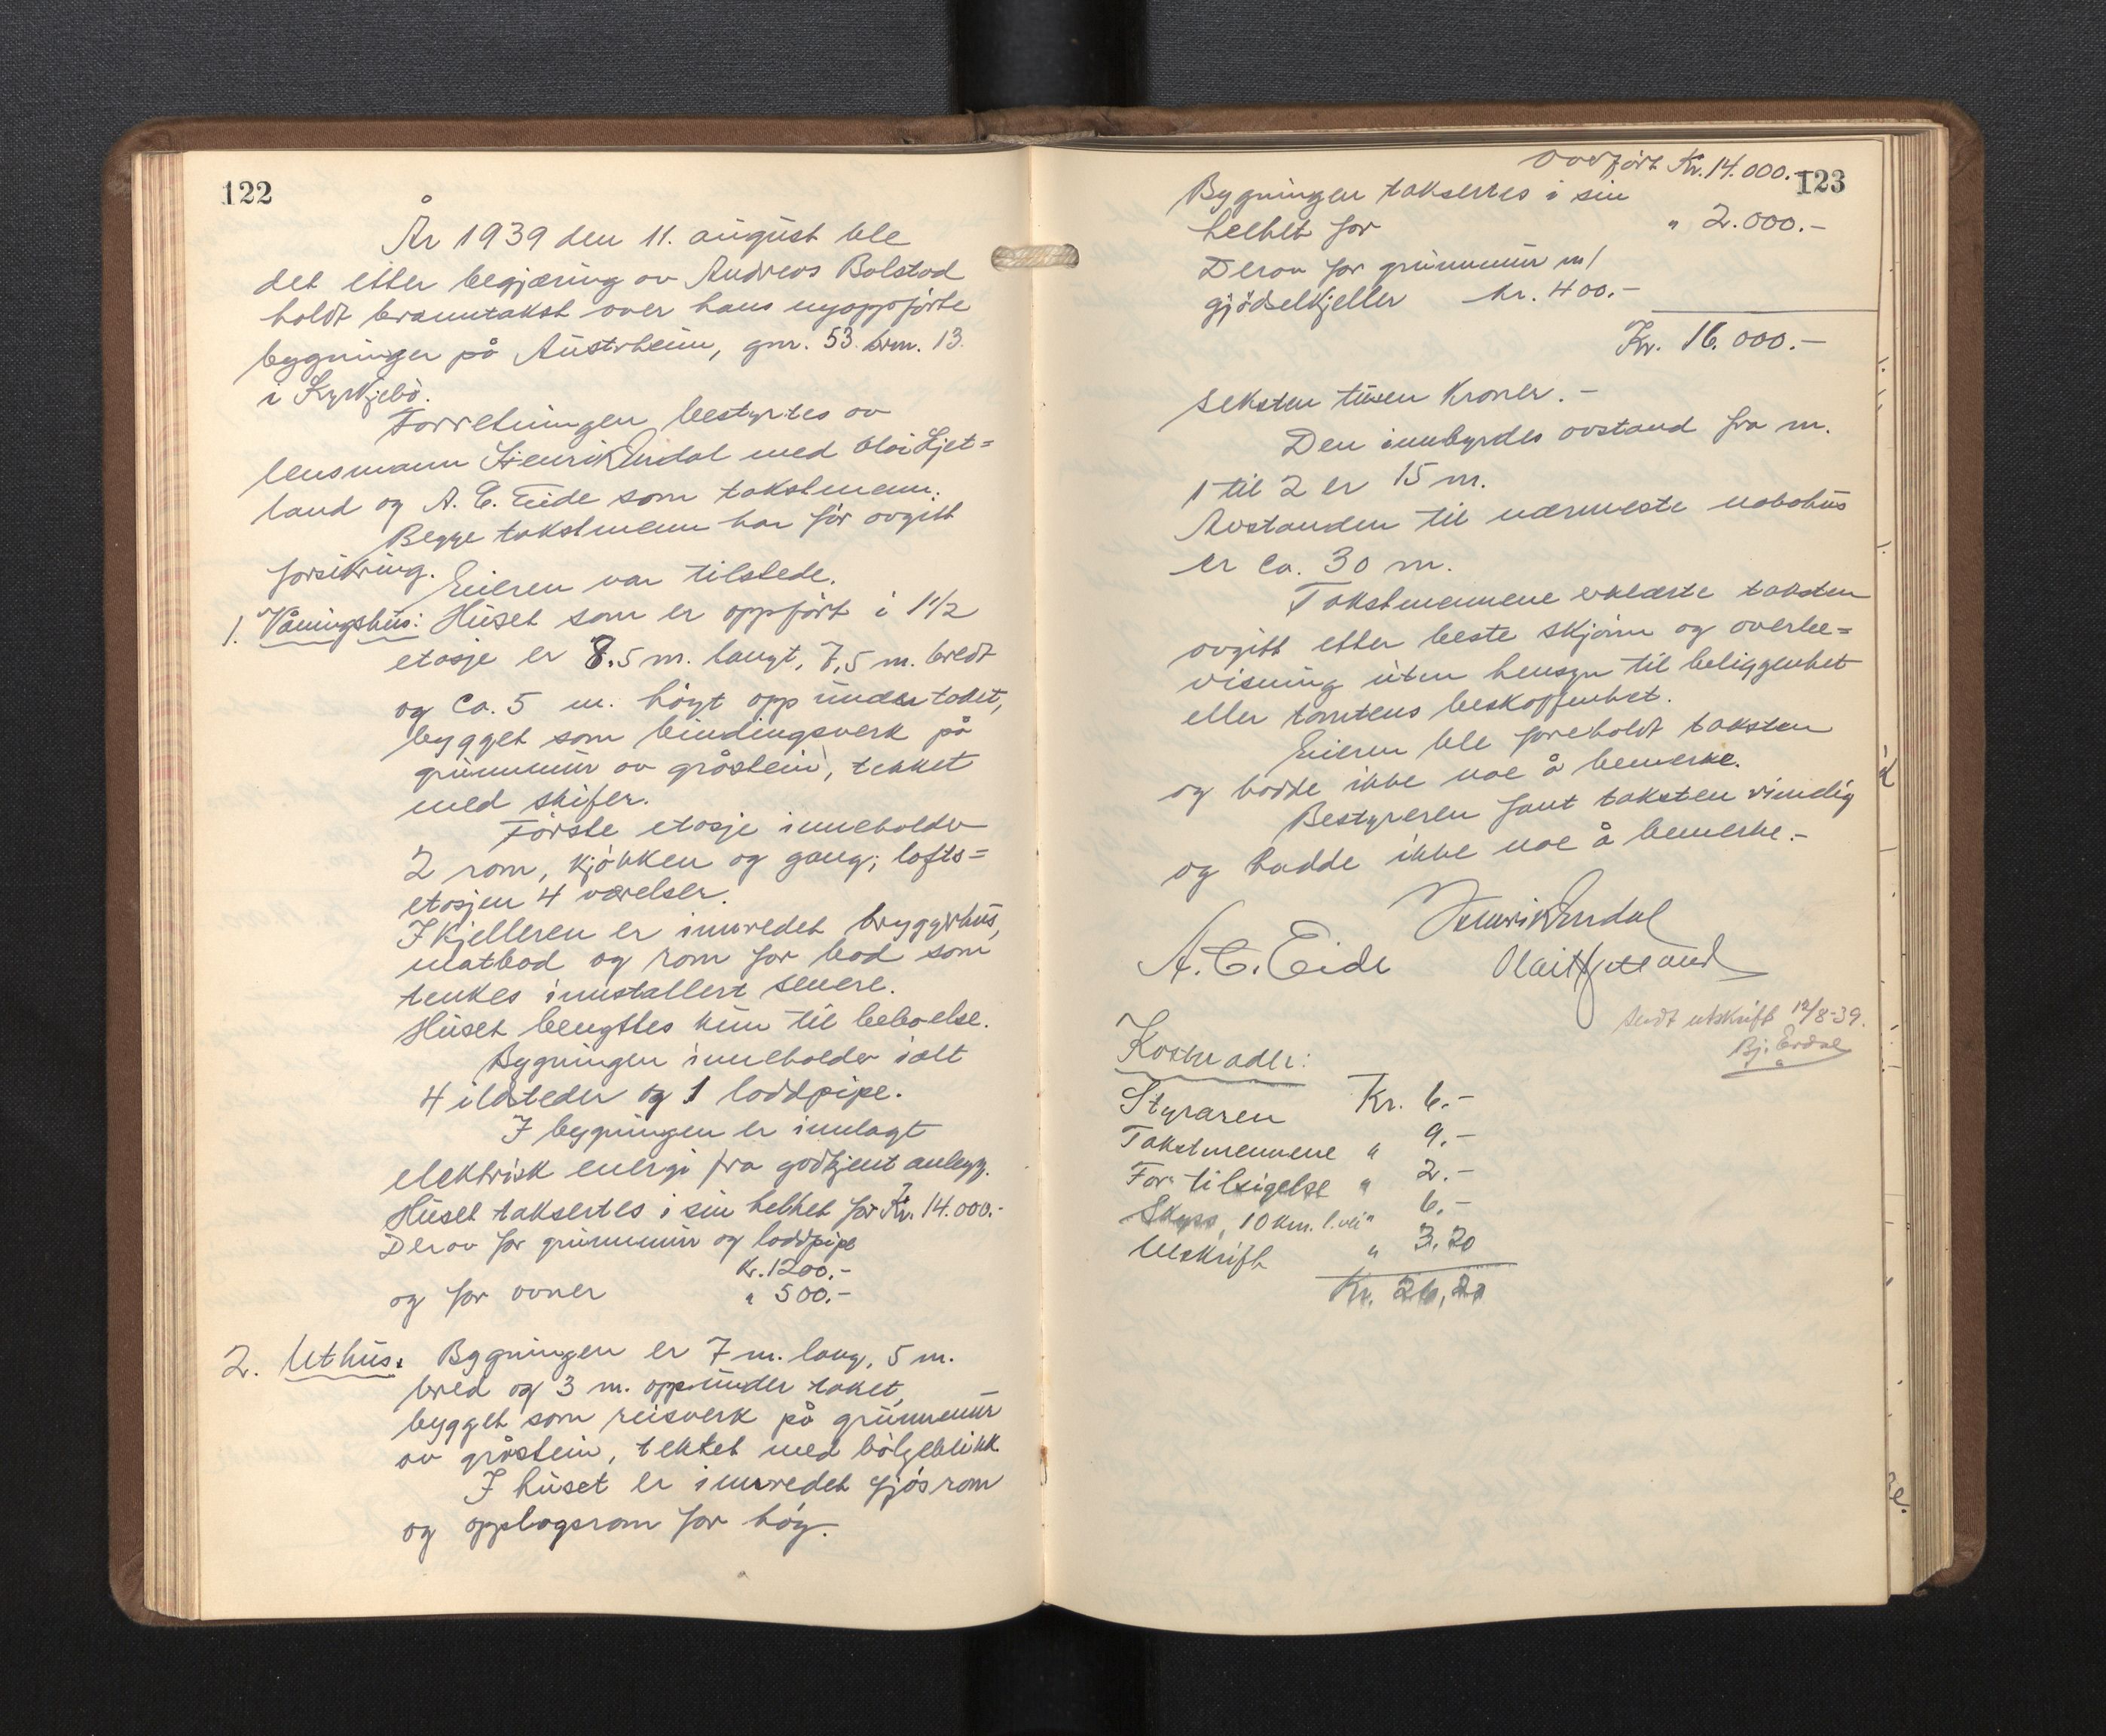 122
År 1939 den 11. august ble
det etter begjæring av Andreas Bolstad
holdt branntakst over hans nyoppførte
bygninger på Austrheim, gnr. 53. brnr. 13.
i Kyrkjebø.
Forretningen bestyrtes av
lensmann Henrik Erdal med Olai Hjet=
land og A. C. Eide som takstmenn.
Begge takstmenn har før avgitt
forsikring.
Eieren var tilstede.
1. Våningshus: Huset som er oppført i 1 1/2
etasje er 8.5 m. langt, 7,5 m. bredt
og ca. 5 m. høyt opp under taket,
bygget som bindingsverk på
grunnmur av gråstein, tekket
med skifer.
Første etasje inneholder
2 rom, kjøkken og gang; lofts=
etasjen 4 værelser.
I kjelleren er innredet bryggerhus,
matbod og rom for bad som
tenkes innstallert senere.
Huset benyttes kun til beboelse.
Bygningen inneholder ialt
4 ildsteder og 1 loddpipe.
I bygningen er innlagt
elektrisk energi fra godkjent anlegg.
Huset taksertes i sin helhet for Kr. 14.000.-
Derav for grunnmur og loddpipe
Kr. 1200.-
og for ovner " 500.-
2. Uthus: Bygningen er 7 m. lang, 5 m.
bred og 3 m. opp under taket,
bygget som reisverk på grunnmur
av gråstein, tekket med bølgeblikk
I huset er innredet fjøsrom
og opplagsrom for høy.
123
overført Kr. 14.000.-
Bygningen taksertes i sin
helhet for " 2.000.-
Derav for grunnmur m/
gjødselkjeller kr. 400.-
Kr. 16.000.-
seksten tusen kroner. -
Den innbyrdes avstand fra nr.
1 til 2 er 15 m.
Avstanden til nærmeste nabohus
er ca. 30 m.
Takstmennene erklærte taksten
avgitt etter beste skjønn og overbe=
visning uten hensyn til beliggenhet
eller tomtens beskaffenhet.
Eieren ble foreholdt taksten
og hadde ikke noe å bemerke.
Bestyreren fant taksten rimelig
og hadde ikke noe å bemerke.-
Henrik Erdal
A. C. Eide Olai Hjetland
Sendt utskrift 12/8-39.
Bj. Erdal
Kostnader:
Styraren Kr. 6.-
Takstmennene " 9.-
For tilsigelse " 2.-
Skyss, 10 km. l.vei " 6.-
Utskrift " 3.20
Kr. 26,20